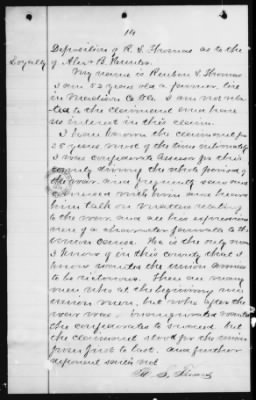 14
Deposition of R. S. Thomas as to the
Loyalty of Alex B. Hunter.
My name is Reuben S. Thomas
I am 52 years old a farmer, live
in Madison Co Ala. I am not rela
ted to the claimant and have
no interest in this claim.
I have known the claimant for
25 years most of the time intimately
I was confederate assessor for this
county during the whole period of
the war and frequently
with him and heard
him talk on matters relating
to the war and all his expressions
were of a character favorable to the
Union cause. He is the only man
I know of in this county that I
know wanted the Union army
to be victorious. There are many
men who at the beginning were
Union men, but who after the
war was inaugurated wanted
the confederates to succeed but
the claimant stood for the Union
from first to last. and further
deponent saith not.
R. S. Thomas